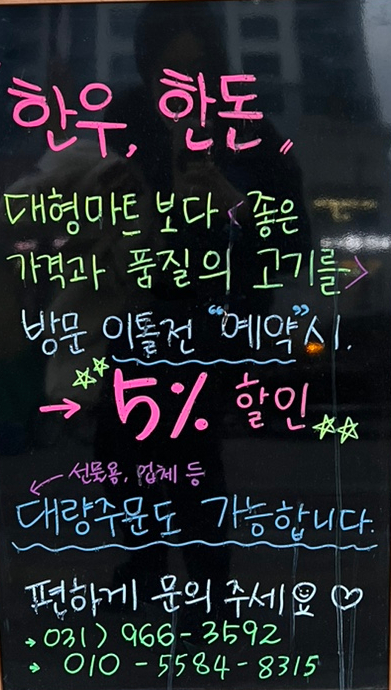 한우, 한돈〃
대형마트 보다 <좋은
가격과 품질의 고기를>
방문 이틀전 "예약"시.
→ 5% 할인
선물용, 업체 등
대량주문도 가능합니다.
편하게 문의 주세요 ♡
→ 031) 966-3592
→ 010-5584-8315